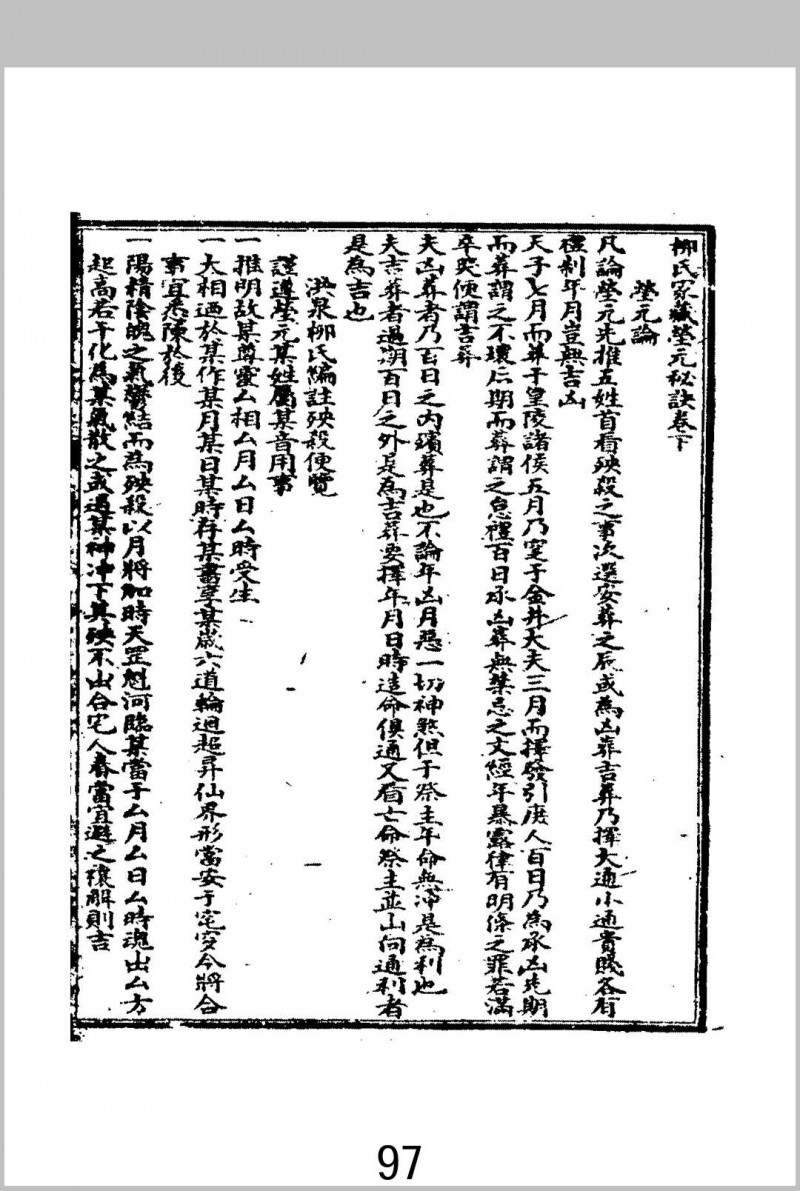 柳氏家藏塋元秘訣卷下
塋元論
凡論塋元先推五姓首看殃殺之事次選安葬之辰或為凶葬吉葬乃擇大通小通貴賤各有
禮制年月豈無吉凶
天子七月而葬于皇陵諸侯五月乃窆于金井大夫三月而擇發引庶人百日乃為承凶先期
而葬謂之不懷后期而葬謂之怠禮百日承凶葬無禁忌之文經年暴露律有明條之罪若滿
卒哭便謂吉葬
夫凶葬者乃百日之內殯葬是也不論年凶月惡一切神煞但于祭主年命無冲是為利也
夫吉葬者過期百日之外是為吉葬要擇年月日時造命俱通又看亡命祭主並山向通利者
是為吉也
洪泉柳氏編註殃殺便覽
謹遵塋元某姓屬某音用事
一推明故某尊靈厶相厶月厶日厶時受生
一大相過於某作某月某日某時存某壽享某歲六道輪迴超昇仙界形當安于宅穸今將合
事宜悉陳於後
一陽精陰魄之氣鬱結而為殃殺以月將加時天罡魁河臨某當于厶月厶日厶時魂出厶方
起高若干化為某氣散之或遇某神冲下其殃不出合宅人眷當宜避之禳解則吉
97